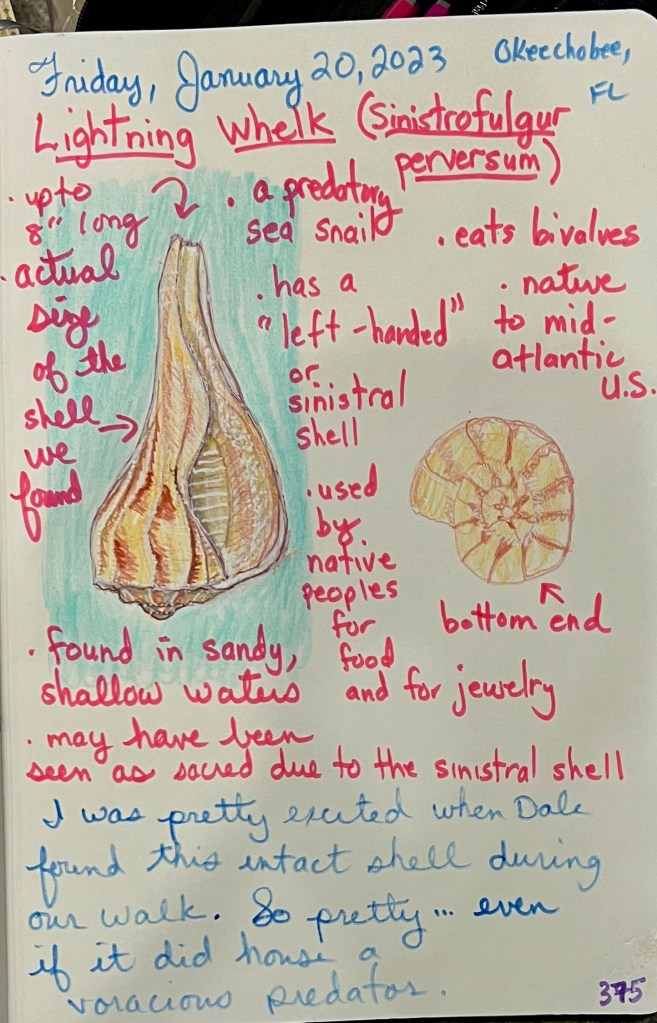 Friday, January 20, 2023
Okeechobee,
FL
Lightning Whelk (Sinistrofulgur
perversum)
• up to
8" long
• actual
size
of the
shell
we
found
• a predatory
sea snail
• has a
"left-handed"
or
sinistral
shell
• used
by
native
peoples
for
food
and for jewelry
• eats bivalves
• native
to mid-
atlantic
U.S.
bottom end
• found in sandy,
shallow waters
• may have been
seen as sacred due to the sinistral shell
I was pretty excited when Dale
found this intact shell during
our walk. So pretty... even
if it did house a
voracious predator.
375